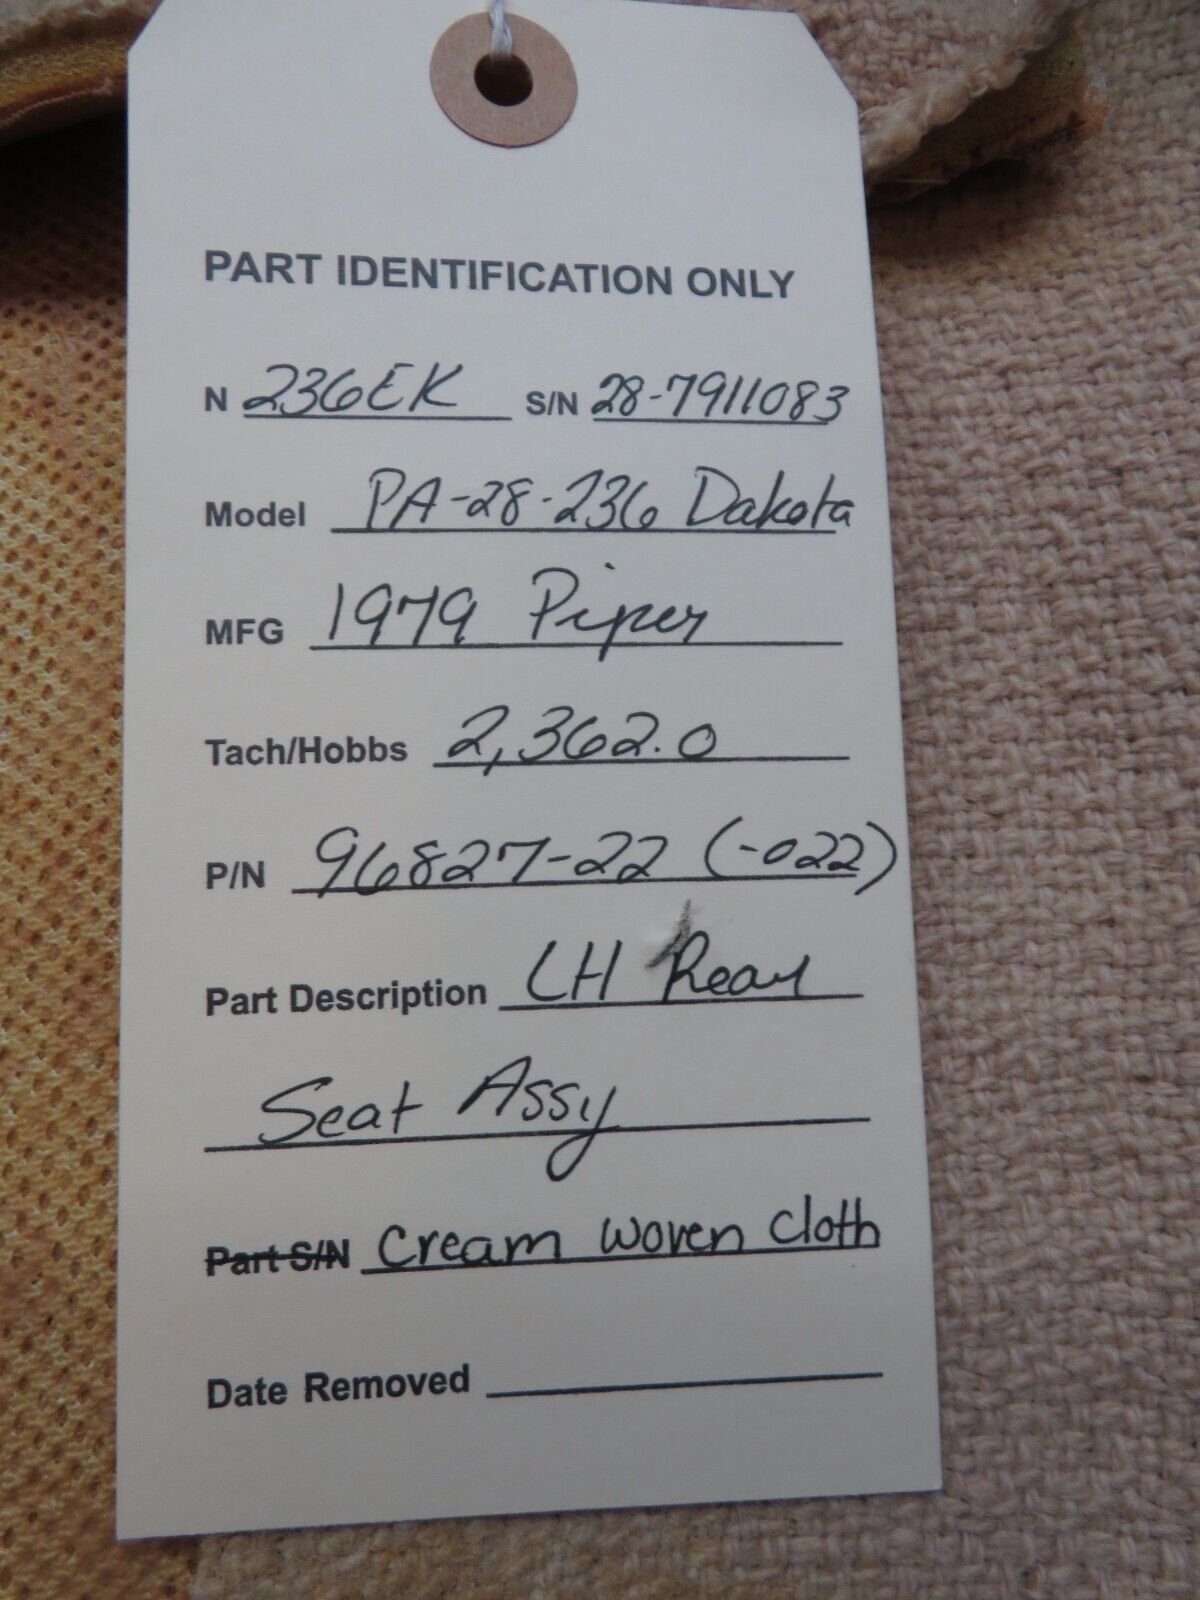 PART IDENTIFICATION ONLY
N 236EK S/N 28-7911083
Model PA-28-236 Dakota
MFG 1979 Piper
Tach/Hobbs 2,362.0
P/N 96827-22 (-022)
Part Description LH Rear
Seat Assy
Part S/N Cream woven cloth
Date Removed